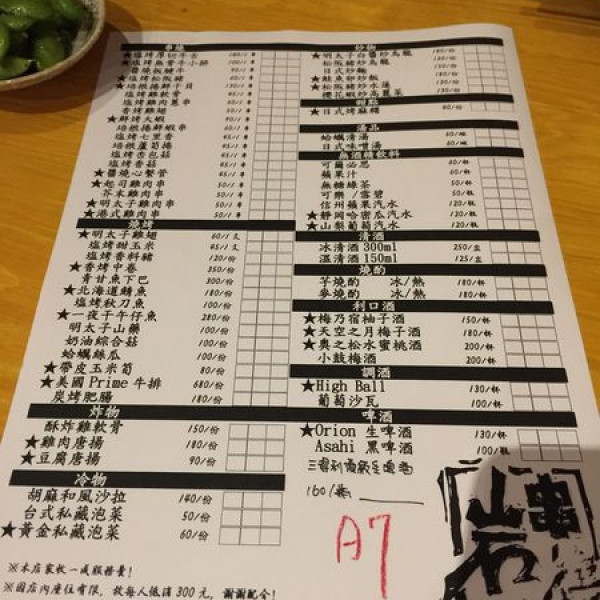 串燒
★塩烤厚切牛舌 180/1串
★塩烤無骨牛小排 100/1串
醬燒板腱牛 90/1串
★塩烤松阪豬 60/1串
★培根捲鮮干貝 130/1串
塩烤雞軟骨 45/1串
塩烤雞肉蔥串 60/1串
香烤雞翅 50/1串
★鮮烤大蝦 90/1串
培根捲鮮蝦串 60/1串
塩烤七里香 45/1串
培根蘆筍捲 45/1串
塩烤杏包菇 45/1串
塩烤香菇 45/1串
★醬燒心繫管 45/1串
★起司雞肉串 50/1串
芥末雞肉串 50/1串
★明太子雞肉串 50/1串
★港式雞肉串 50/1串
燒烤
★明太子雞翅 60/1支
塩烤甜玉米 45/1支
塩烤香料豬 120/份
★香烤中卷 350/份
青甘魚下巴 300/份
★北海道鯖魚 180/份
塩烤秋刀魚 100/份
★一夜干午仔魚 280/份
明太子山藥 100/份
奶油綜合菇 100/份
蛤蠣絲瓜 100/份
★帶皮玉米筍 80/份
★美國 Prime 牛排 680/份
炭烤肥腸 180/份
炸物
酥炸雞軟骨 150/份
★雞肉唐揚 180/份
★豆腐唐揚 90/份
冷物
胡麻和風沙拉 140/份
台式私藏泡菜 50/份
★黃金私藏泡菜 60/份
※本店家收一成服務費!
※因店內座位有限,故每人低消 300 元,謝謝配合!
炒物
★明太子白醬炒烏龍 180/份
松阪豬炒烏龍 150/份
日式炒麵 130/份
★鮭魚卵炒飯
松阪豬炒水蓮 150/份
櫻花蝦炒高麗菜 130/份
甜點
★日式烤麻糬 80/份
湯品
蛤蠣清湯 60/碗
日式味噌湯 60/碗
無酒精飲料
可爾必思 60/杯
蘋果汁 60/杯
無糖綠茶 50/杯
可樂/雪碧 50/杯
信州蘋果汽水 120/瓶
★靜岡哈密瓜汽水 120/瓶
★山梨葡萄汽水 120/瓶
清酒
冰清酒 300ml 250/盅
溫清酒 150ml 125/盅
燒酌
芋燒酌 冰/熱 180/杯
麥燒酌 冰/熱 180/杯
利口酒
★梅乃宿柚子酒 150/杯
★天空之月梅子酒 180/杯
★奧之松水蜜桃酒 200/杯
小鼓梅酒 200/杯
調酒
★High Ball 130/杯
葡萄沙瓦 100/杯
啤酒
★Orion 生啤酒 130/杯
Asahi 黑啤酒 100/瓶
160/
A7
串
岩